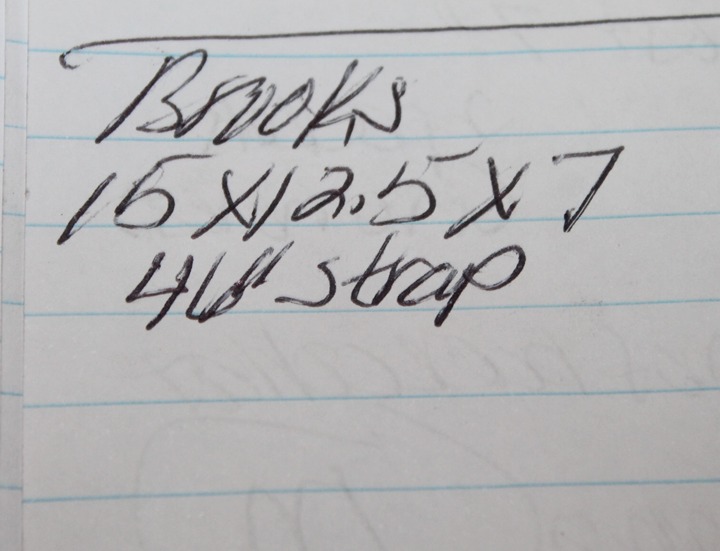 Brooks
15 X 12.5 X 7
46" strap